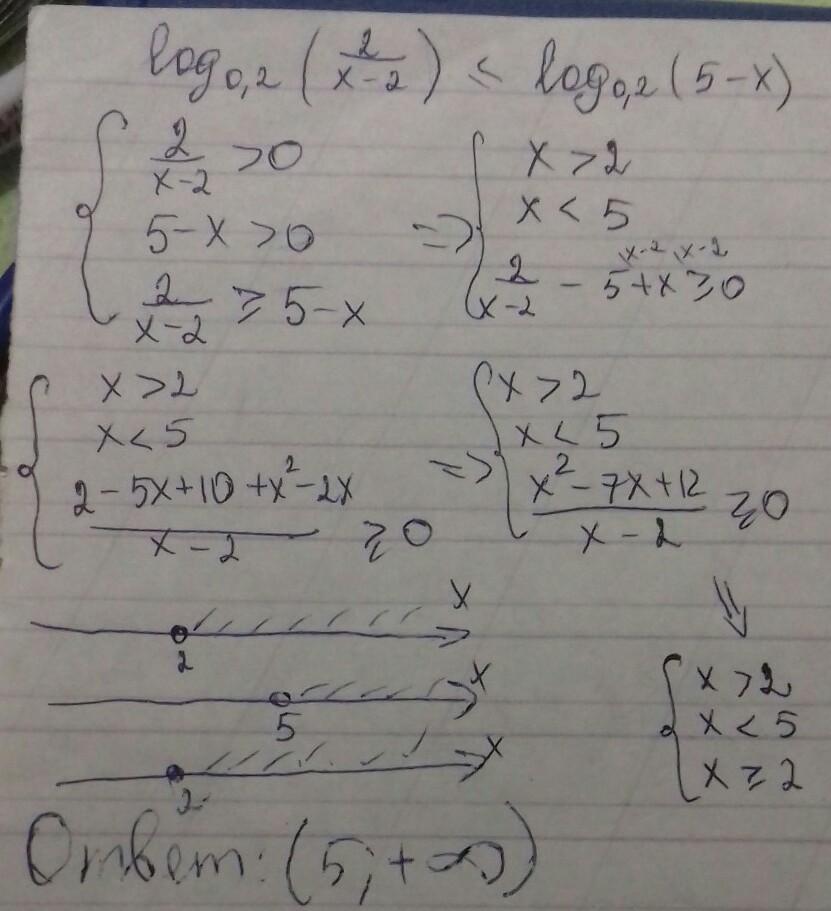 log₀,₂ (2/(x-2)) ≤ log₀,₂ (5-x)
{ 2/(x-2) >0
5-x >0
2/(x-2) ≥ 5-x
=> { x >2
x < 5
2/(x-2) - 5^(x-2) + x^(x-2) ≥ 0
{ x >2
x < 5
(2-5x+10+x²-2x)/(x-2) ≥ 0
=> { x >2
x < 5
(x²-7x+12)/(x-2) ≥ 0
⇓
{ x >2
x < 5
x ≥ 2
x
2
x
5
x
2
Ответ: (5; +∞)